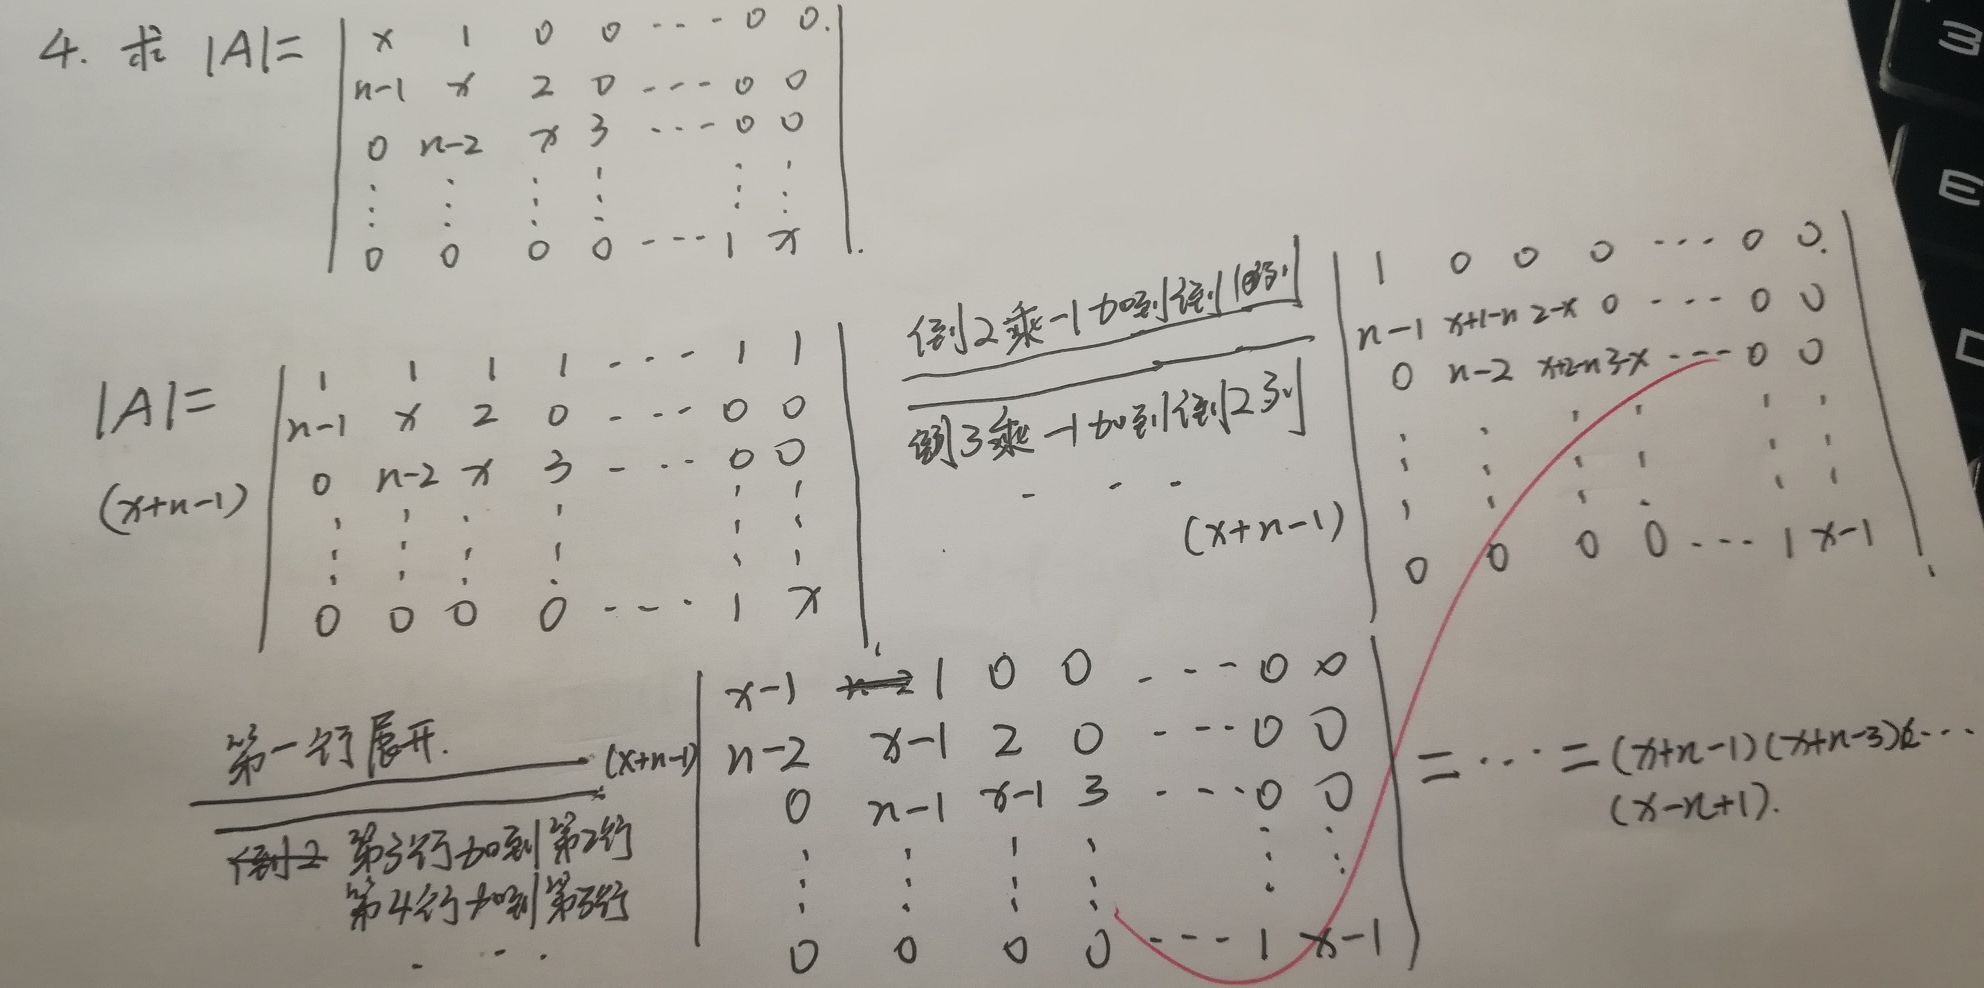 4. 求 |A|=
x 1 0 0 ---- 0 0.
n-1 x 2 0 ---- 0 0
0 n-2 x 3 ---- 0 0
0 0 0 0 ---- 1 x
|A|=
(x+n-1)
1 1 1 1 ---- 1 1
n-1 x 2 0 ---- 0 0
0 n-2 x 3 ---- 0 0
0 0 0 0 ---- 1 x
倒2乘-1加到倒1列
倒3乘-1加到倒2列
(x+n-1)
1 0 0 0 ---- 0 0.
n-1 x+1-n 2-x 0 ---- 0 0
0 n-2 x+2-n 3-x ---- 0 0
0 0 0 0 ---- 1 x-1
第一行展开.
第3行加到第2行
第4行加到第3行
(x+n-1)
x-1 1 0 0 ---- 0 0
n-2 x-1 2 0 ---- 0 0
0 n-1 x-1 3 ---- 0 0
0 0 0 0 ---- 1 x-1
= ... = (x+n-1)(x+n-3)...
(x-n+1).
3
E